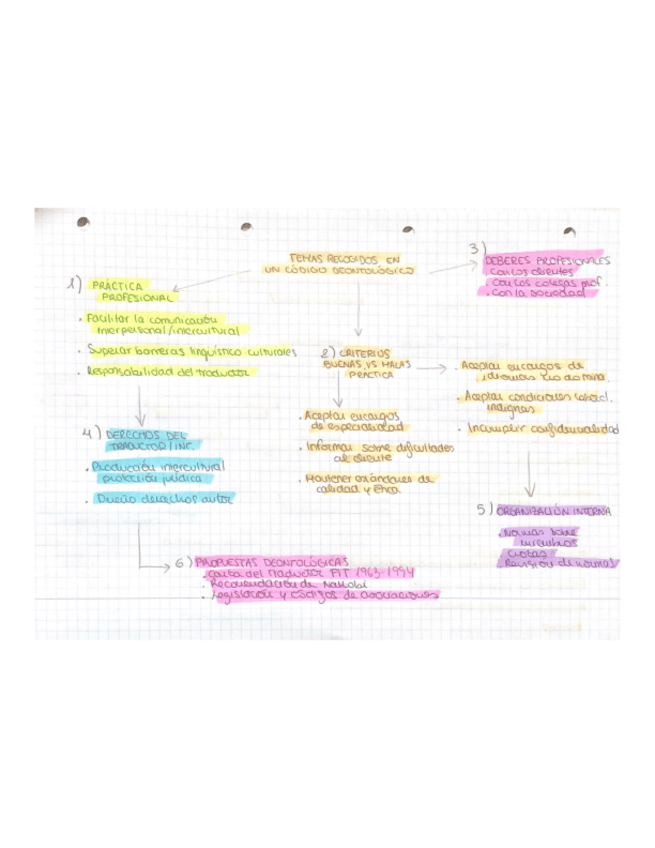 TEMAS RECOGIDOS EN
UN CÓDIGO DEONTOLÓGICO
1) PRÁCTICA
PROFESIONAL
. Facilitar la comunicación
interpersonal/intercultural
. Superar barreras lingüístico culturales
. Responsabilidad del traductor
2) CRITERIOS
BUENAS VS MALAS
PRÁCTICA
. Aceptar encargos
de especialidad
. Informar sobre dificultades
al cliente
. Mantener estándares de
calidad y ética
. Aceptar encargos de
idiomas no domina.
. Aceptar condiciones laboral.
indignas
. Incumplir confidencialidad
3)
DEBERES PROFESIONALES
. con los clientes
. con los colegas prof.
. con la sociedad
4) DERECHOS DEL
TRADUCTOR/INC.
. Producción intercultural
protección jurídica
. Dueño derechos autor
5) ORGANIZACIÓN INTERNA
. Normas sobre
miembros
Cuotas
Revisión de normas
6) PROPUESTAS DEONTOLÓGICAS
. Carta del traductor FIT 1963-1994
. Recomendación de Nairobi
. Legislación y códigos de asociaciones